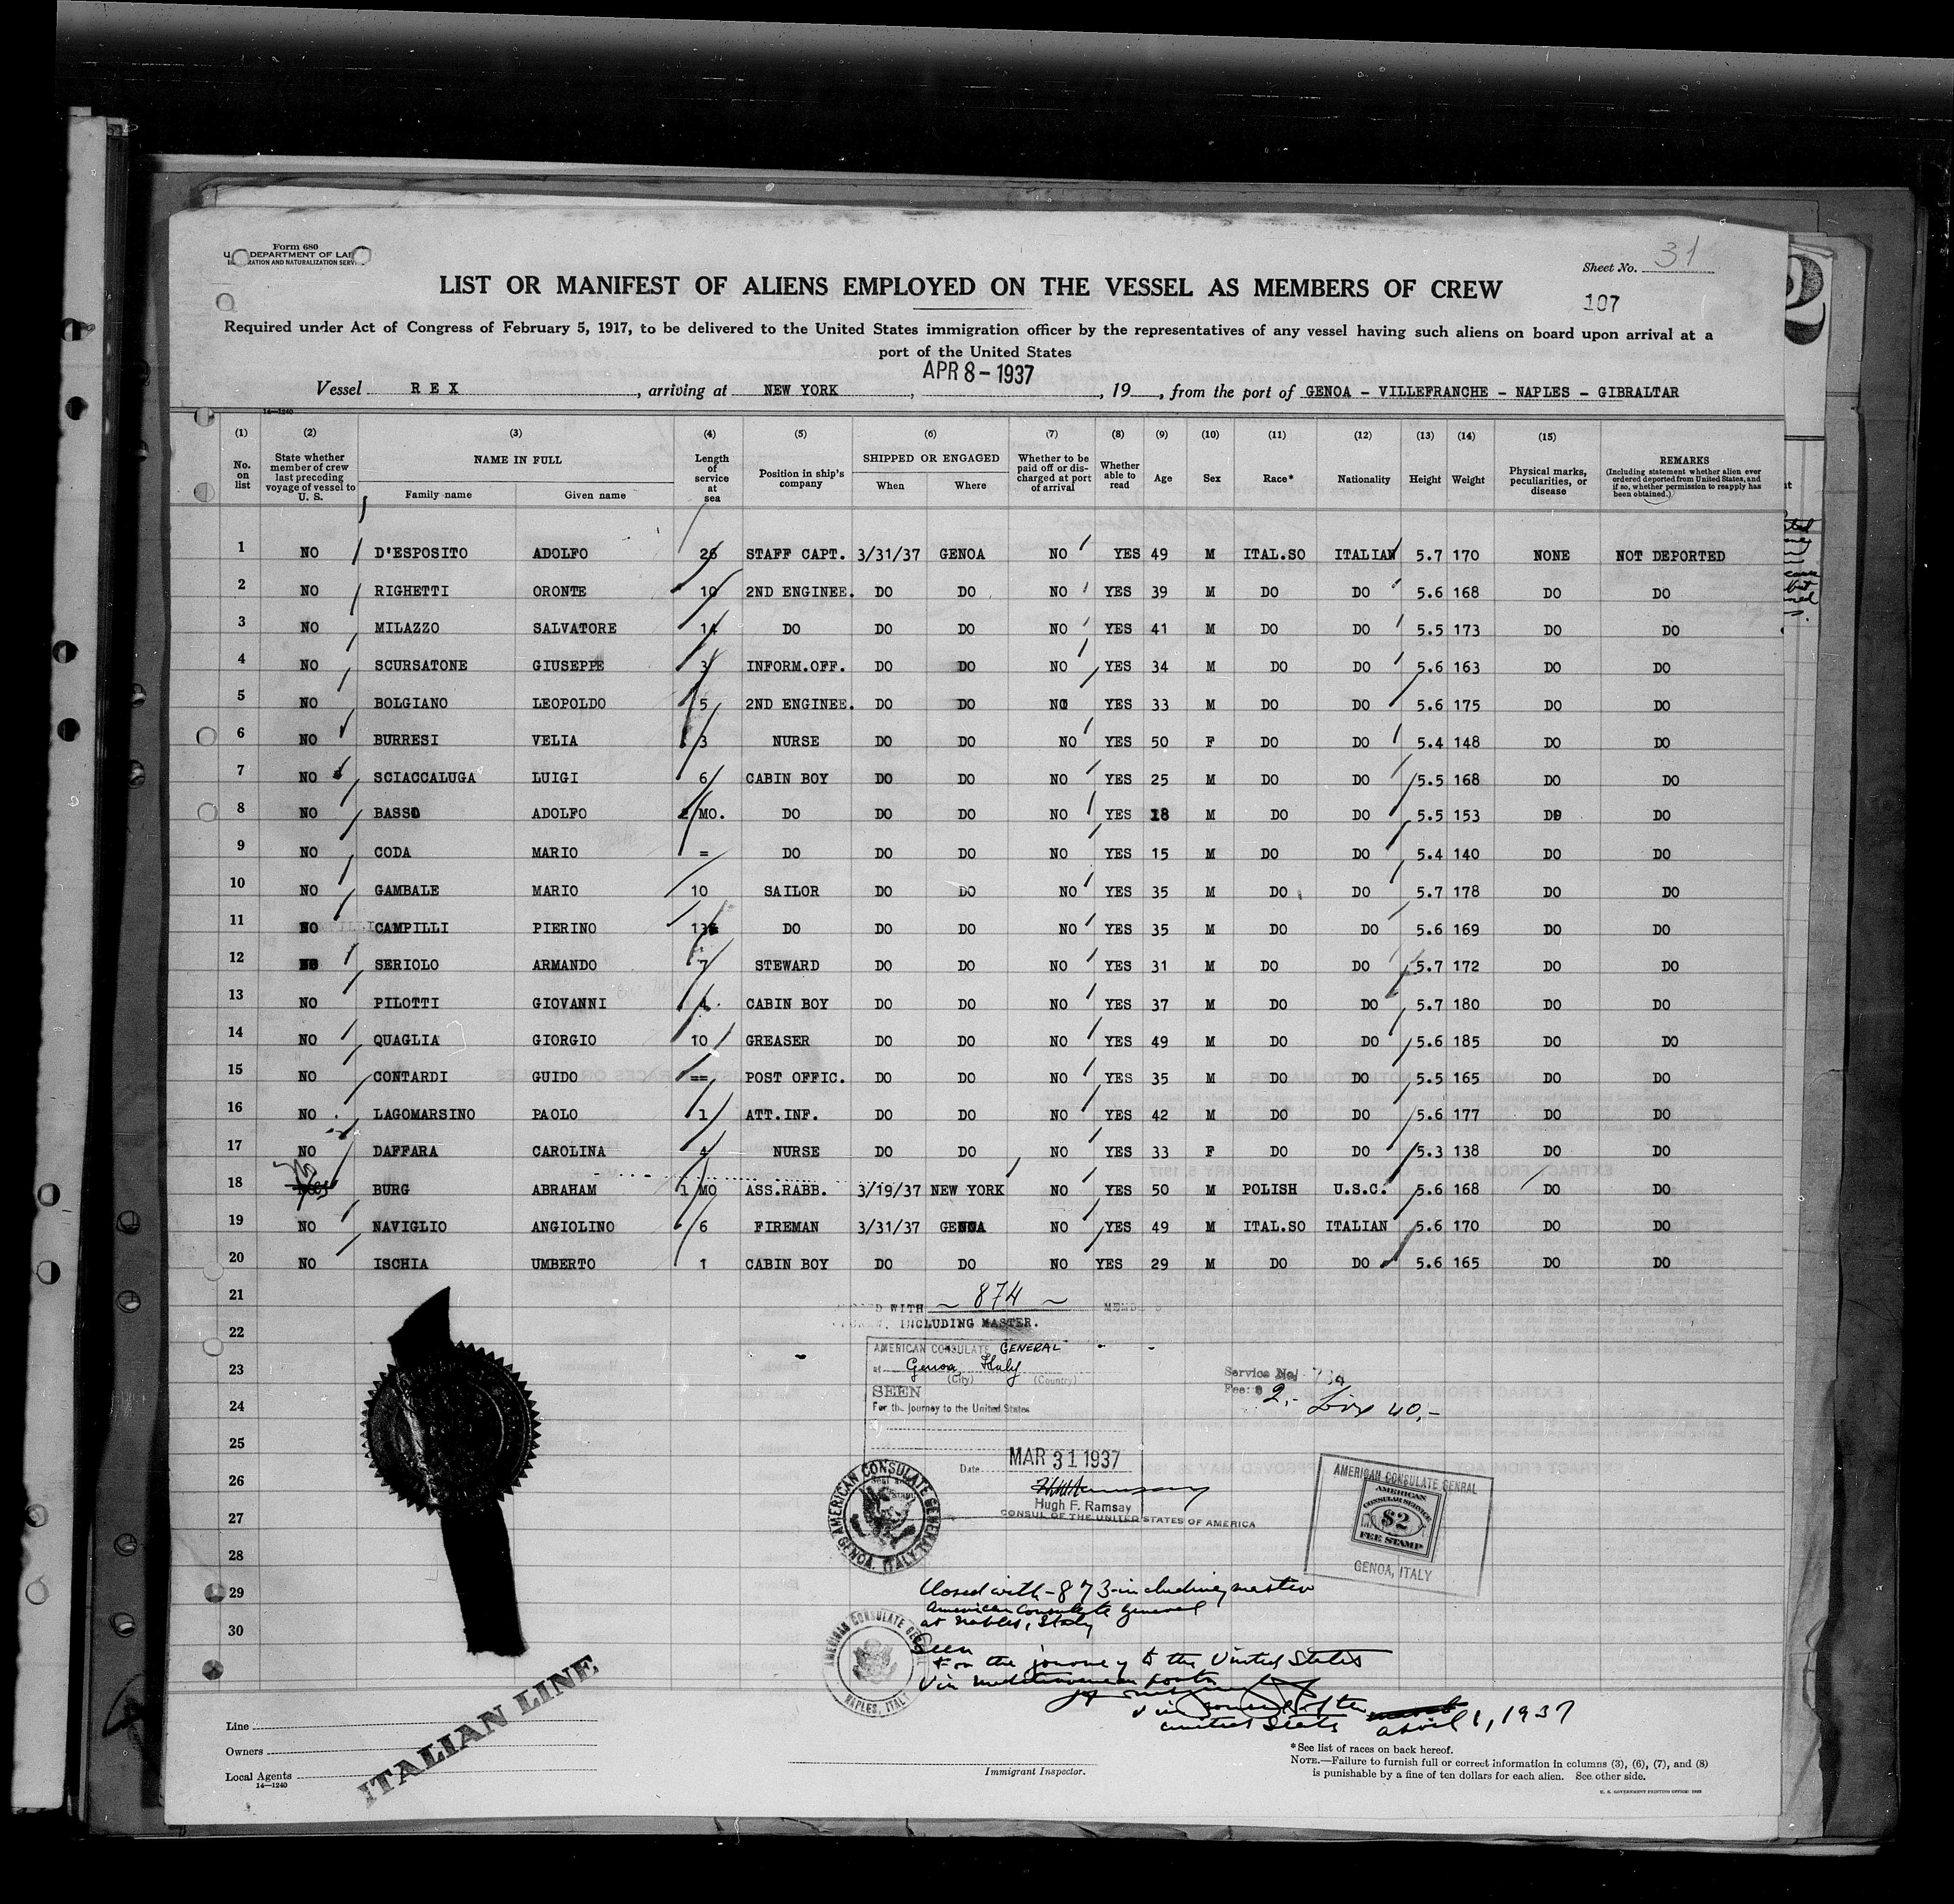 Form 680
U. DEPARTMENT OF LAB
IMMIGRATION AND NATURALIZATION SERV
Sheet No. 31
LIST OR MANIFEST OF ALIENS EMPLOYED ON THE VESSEL AS MEMBERS OF CREW
107
Required under Act of Congress of February 5, 1917, to be delivered to the United States immigration officer by the representatives of any vessel having such aliens on board upon arrival at a
port of the United States
APR 8 - 1937
Vessel REX, arriving at NEW YORK, , 19 , from the port of GENOA - VILLEFRANCHE - NAPLES - GIBRALTAR
14-1240
(1) (2) (3) (4) (5) (6) (7) (8) (9) (10) (11) (12) (13) (14) (15)
No. on list
State whether member of crew last preceding voyage of vessel to U. S.
NAME IN FULL
Family name Given name
Length of service at sea
Position in ship's company
SHIPPED OR ENGAGED
When Where
Whether to be paid off or discharged at port of arrival
Whether able to read
Age
Sex
Race*
Nationality
Height
Weight
Physical marks, peculiarities, or disease
REMARKS
(Including statement whether alien ever ordered deported from United States, and if so, whether permission to reapply has been obtained.)
1 NO D'ESPOSITO ADOLFO 26 STAFF CAPT. 3/31/37 GENOA NO YES 49 M ITAL.SO ITALIAN 5.7 170 NONE NOT DEPORTED
2 NO RIGHETTI ORONTE 10 2ND ENGINEE. DO DO NO YES 39 M DO DO 5.6 168 DO DO
3 NO MILAZZO SALVATORE 14 DO DO DO NO YES 41 M DO DO 5.5 173 DO DO
4 NO SCURSATONE GIUSEPPE 3 INFORM.OFF. DO DO NO YES 34 M DO DO 5.6 163 DO DO
5 NO BOLGIANO LEOPOLDO 5 2ND ENGINEE. DO DO NO YES 33 M DO DO 5.6 175 DO DO
6 NO BURRESI VELIA 3 NURSE DO DO NO YES 50 F DO DO 5.4 148 DO DO
7 NO SCIACCALUGA LUIGI 6 CABIN BOY DO DO NO YES 25 M DO DO 5.5 168 DO DO
8 NO BASSO ADOLFO 2 MO. DO DO DO NO YES 18 M DO DO 5.5 153 DO DO
9 NO CODA MARIO = DO DO DO NO YES 15 M DO DO 5.4 140 DO DO
10 NO GAMBALE MARIO 10 SAILOR DO DO NO YES 35 M DO DO 5.7 178 DO DO
11 NO CAMPILLI PIERINO 13 DO DO DO NO YES 35 M DO DO 5.6 169 DO DO
12 NO SERIOLO ARMANDO 7 STEWARD DO DO NO YES 31 M DO DO 5.7 172 DO DO
13 NO PILOTTI GIOVANNI 4 CABIN BOY DO DO NO YES 37 M DO DO 5.7 180 DO DO
14 NO QUAGLIA GIORGIO 10 GREASER DO DO NO YES 49 M DO DO 5.6 185 DO DO
15 NO CONTARDI GUIDO == POST OFFIC. DO DO NO YES 35 M DO DO 5.5 165 DO DO
16 NO LAGOMARSINO PAOLO 1 ATT.INF. DO DO NO YES 42 M DO DO 5.6 177 DO DO
17 NO DAFFARA CAROLINA 4 NURSE DO DO NO YES 33 F DO DO 5.3 138 DO DO
18 BURG ABRAHAM 1 MO ASS.RABB. 3/19/37 NEW YORK NO YES 50 M POLISH U.S.C. 5.6 168 DO DO
19 NO NAVIGLIO ANGIOLINO 6 FIREMAN 3/31/37 GENOA NO YES 49 M ITAL.SO ITALIAN 5.6 170 DO DO
20 NO ISCHIA UMBERTO 1 CABIN BOY DO DO NO YES 29 M DO DO 5.6 165 DO DO
21
22
23
24
25
26
27
28
29
30
WITH ~ 874 ~ MEMB
INCLUDING MASTER.
AMERICAN CONSULATE GENERAL
at Genoa, Italy
(City) (Country)
SEEN
For the journey to the United States
Date MAR 31 1937
Hugh F. Ramsay
CONSUL OF THE UNITED STATES OF AMERICA
Service No.
Fee: $ 2.- Lire 40.-
AMERICAN CONSULATE GENERAL GENOA, ITALY
AMERICAN CONSULATE GENRAL
AMERICAN
CONSULAR SERVICE
$2
FEE STAMP
GENOA, ITALY
Closed with -873- including master
American Consulate General
at Naples, Italy
Seen
For the journey to the United States
via Mediterranean ports
Vice Consul of the
United States April 1, 1937
AMERICAN CONSULATE GENERAL NAPLES, ITALY
Line
Owners
Local Agents
14-1240
ITALIAN LINE
Immigrant Inspector.
*See list of races on back hereof.
NOTE.—Failure to furnish full or correct information in columns (3), (6), (7), and (8)
is punishable by a fine of ten dollars for each alien. See other side.
U. S. GOVERNMENT PRINTING OFFICE: